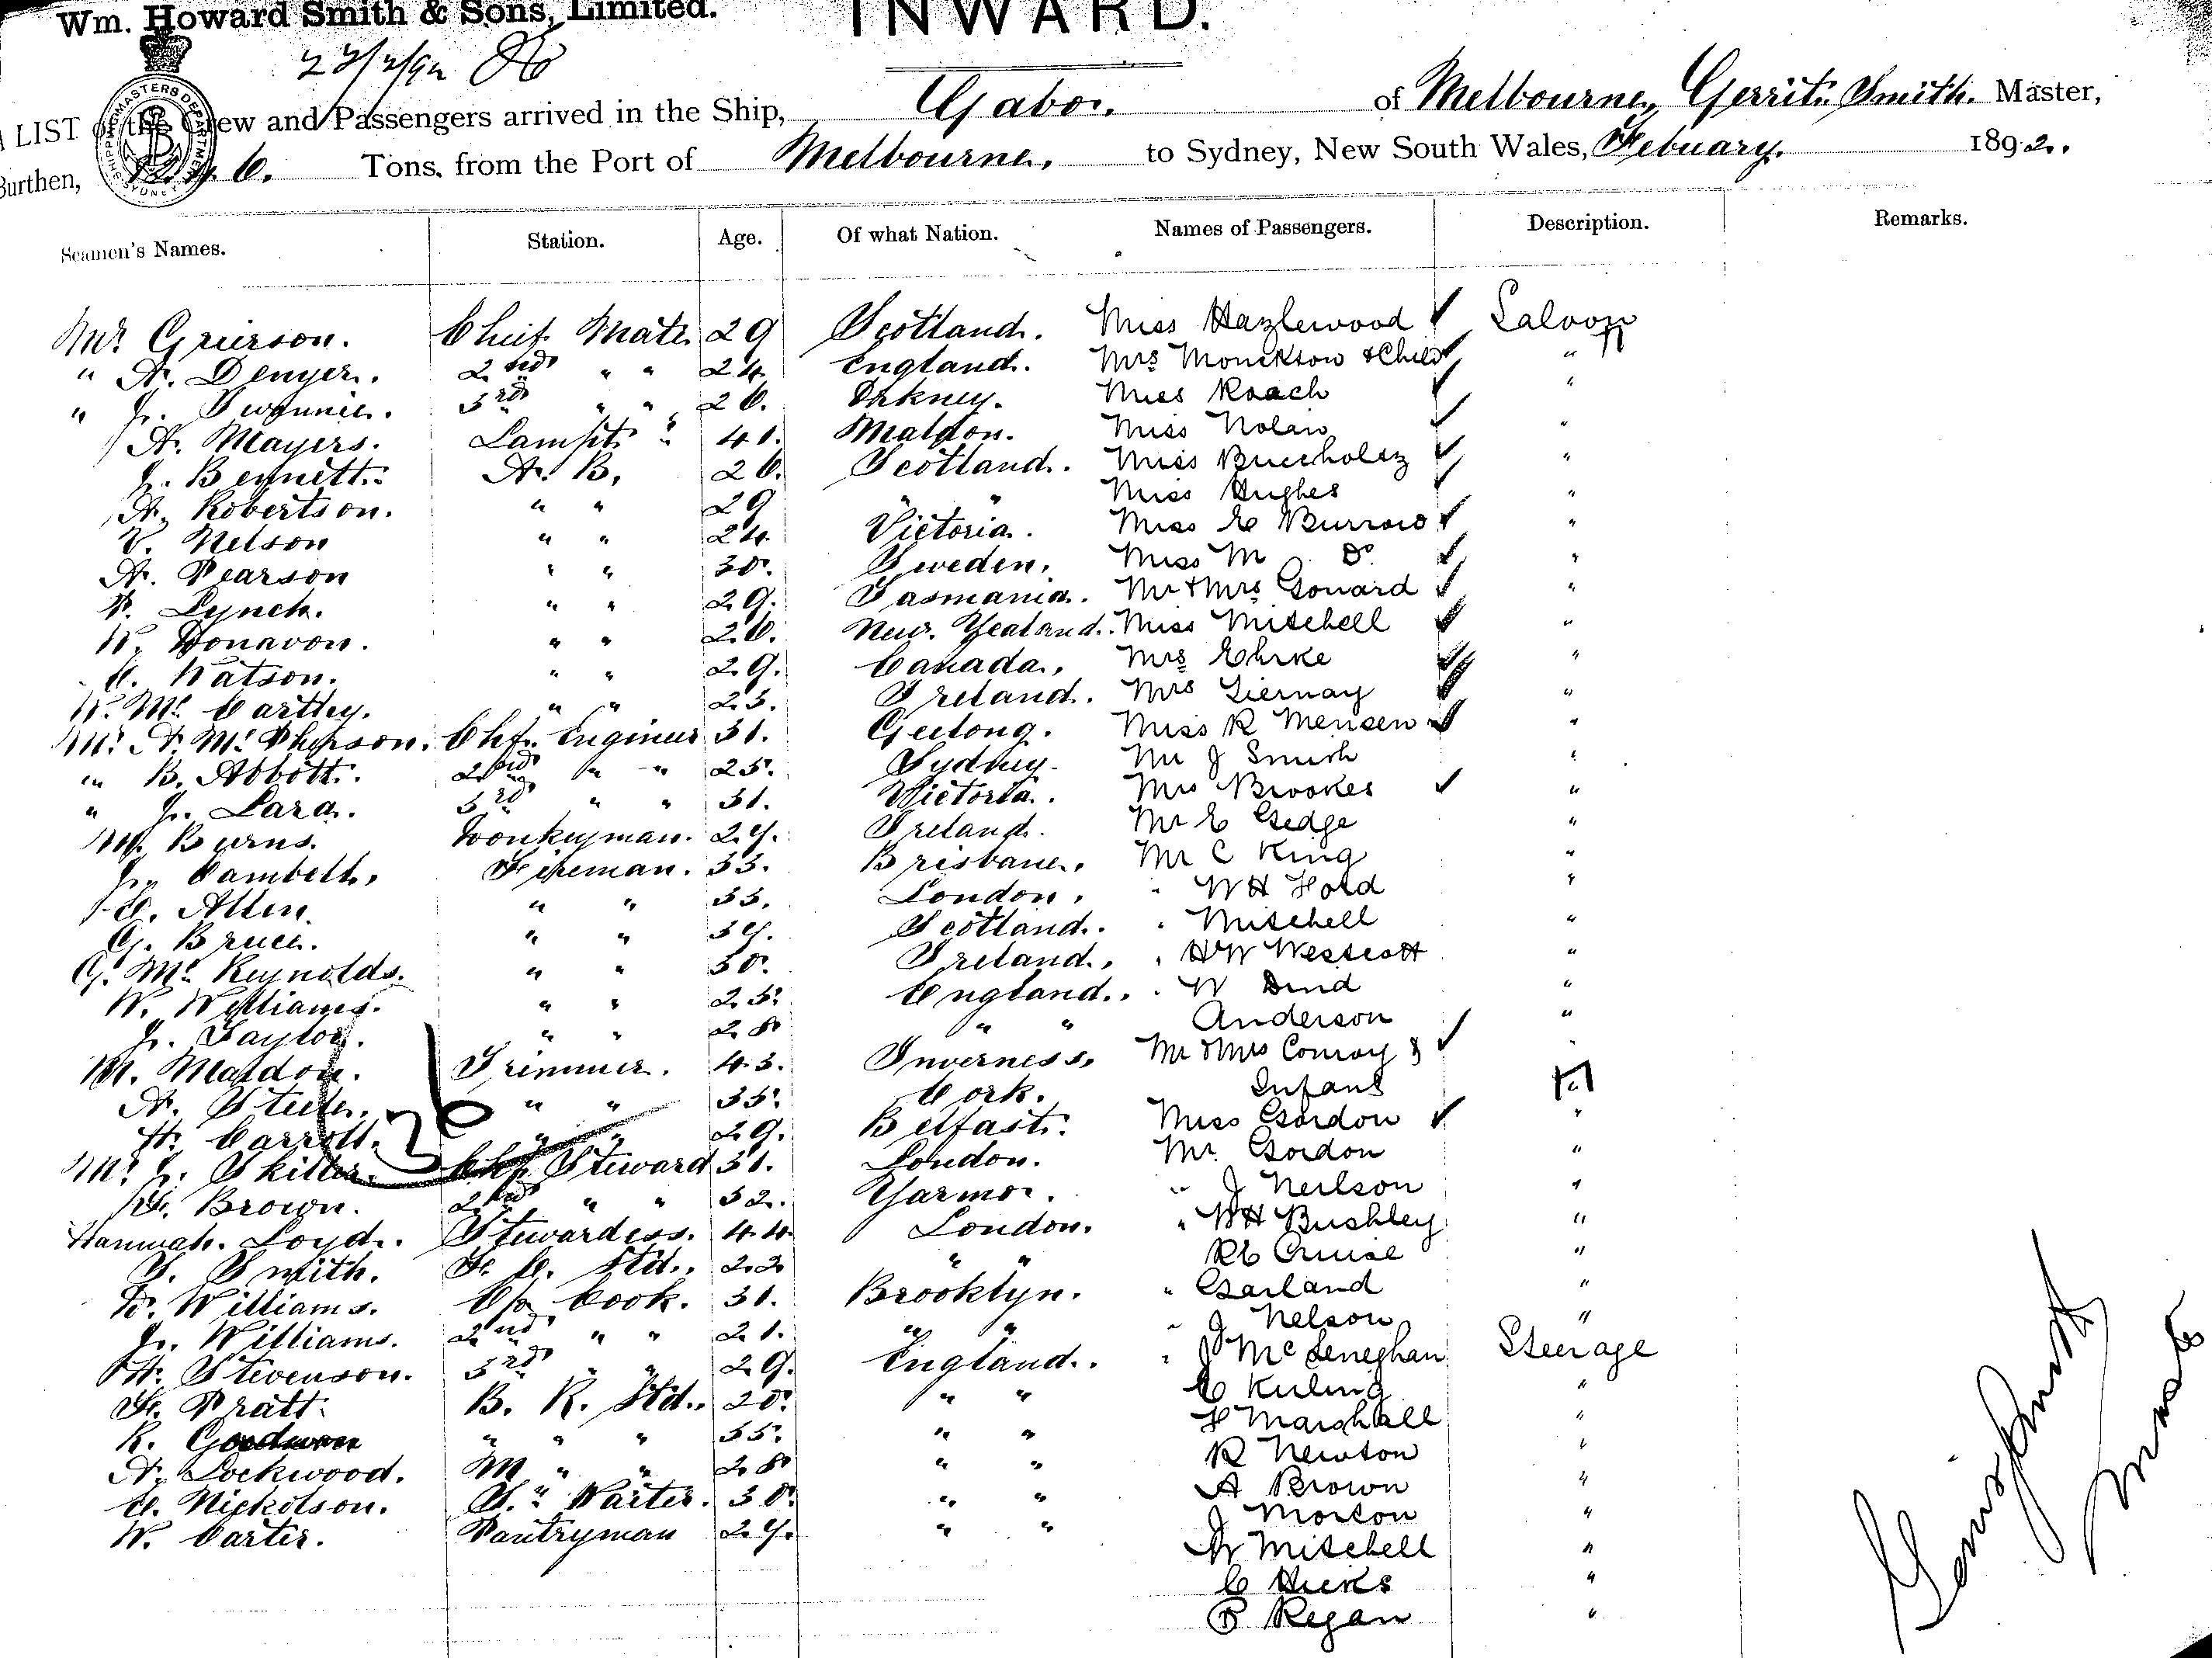 Wm. Howard Smith & Sons, Limited.
INWARD.
23/2/92
A LIST of the Crew and Passengers arrived in the Ship, Gabo. of Melbourne, Gerrit Smith. Master,
Burthen, Tons, from the Port of Melbourne, to Sydney, New South Wales, Febuary. 1892.
Seamen's Names. Station. Age. Of what Nation. Names of Passengers. Description. Remarks.
Mr. Grierson. Chief Mate 29 Scotland. Miss Hazlewood ✓ Saloon
" A. Denyer. 2nd " " 24 England. Mrs Monckton & Child ✓ "
" J. Swannie. 3rd " " 26. Orkney. Miss Roach ✓ "
A. Mayers. Lampt. " 41. Maldon. Miss Nolan ✓ "
J. Bennett. A. B. 26. Scotland. Miss Bucholtz ✓ "
A. Robertson. " " 29 " " Miss Hughes ✓ "
V. Nelson " " 24 Victoria. Miss E Burrows ✓ "
A. Pearson " " 30. Sweden. Miss M Do. ✓ "
P. Lynch. " " 29. Tasmania. Mr & Mrs Gonard ✓ "
W. Donavon. " " 26. New. Zealand. Miss Mitchell ✓ "
C. Watson. " " 29. Canada. Mrs Ehrke ✓ "
W. Mc. Cartley. " " 23. Ireland. Mrs Tiernay ✓ "
Mr. A. Mc. Pherson. Chf. Engineer 31. Geelong. Miss R Mensen ✓ "
" B. Abbott. 2nd " " 25. Sydney. Mr J Smith "
" J. Lara. 3rd " " 31. Victoria. Mrs Brookes ✓ "
M. Burns. Donkeyman. 27. Ireland. Mr E Gedge "
J. Cambell. Fireman. 33. Brisbane. Mr C King "
C. Allen. " " 33. London. " W H Hold "
G. Bruce. " " 37. Scotland. " Mitchell "
G. Mc. Reynolds. " " 30. Ireland. " H W Westcott "
W. Williams. " " 25. England. " W Dind "
J. Taylor. " " 28 " " Anderson "
M. Maldon. Trimmer. 43. Inverness. Mr & Mrs Conroy & ✓ "
A. Steele. " " 35. Cork. Infant
H. Carroll. " " 29. Belfast. Miss Gordon ✓ "
Mr. J. Skilter. Chf. Steward 31. London. Mr. Gordon "
F. Brown. 2nd " " 32. Yarmo. " J Neilson "
Hannah. Loyd. Stewardess. 44 London. " W H Bushley "
S. Smith. F. C. Std. 22 " " R E Cruise "
W. Williams. Cook. 31. Brooklyn. " Garland "
J. Williams. 2nd " " 21. " " " J Nelson "
H. Stevenson. 3rd " " 29. England. " J McLeneghan Steerage
F. Pratt. B. R. Std. 20. " " C Kuling "
R. Goodwon " " " 35. " " F Marshall "
A. Lockwood. M " " 28 " " R Newton "
C. Nickolson. S. " Waiter. 30. " " A Brown "
W. Carter. Pantryman 27. " " J Morton "
W Mitchell "
C Hicks "
P Regan "
36
Master